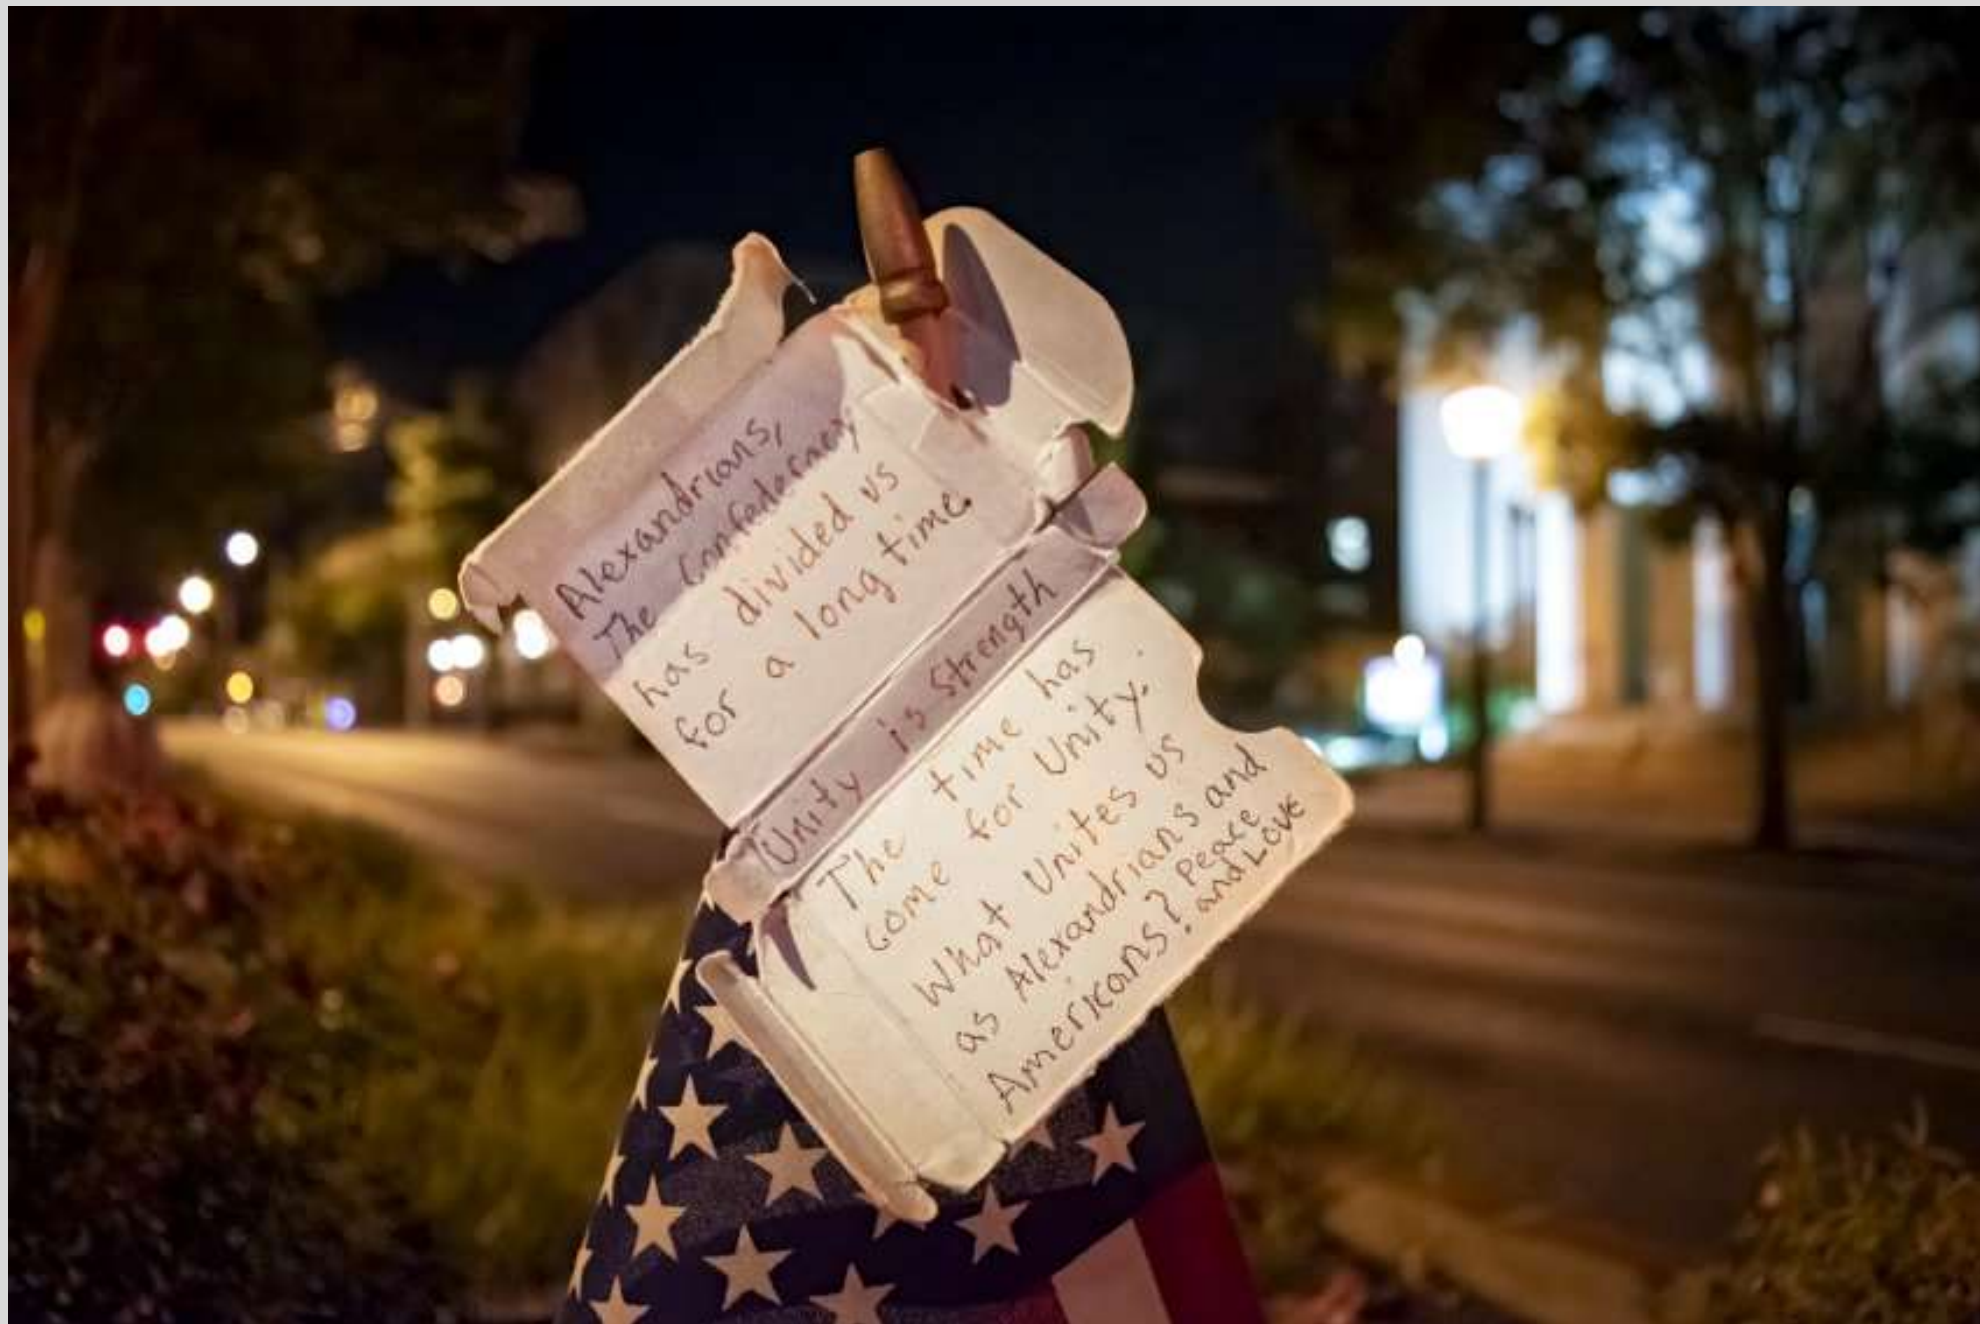 Alexandrians,
The Confedernecy
has divided us
for a long time.
Unity is strength
The time has
come for Unity.
What Unites us
as Alexandrians and
Americans? Peace
and LOVE